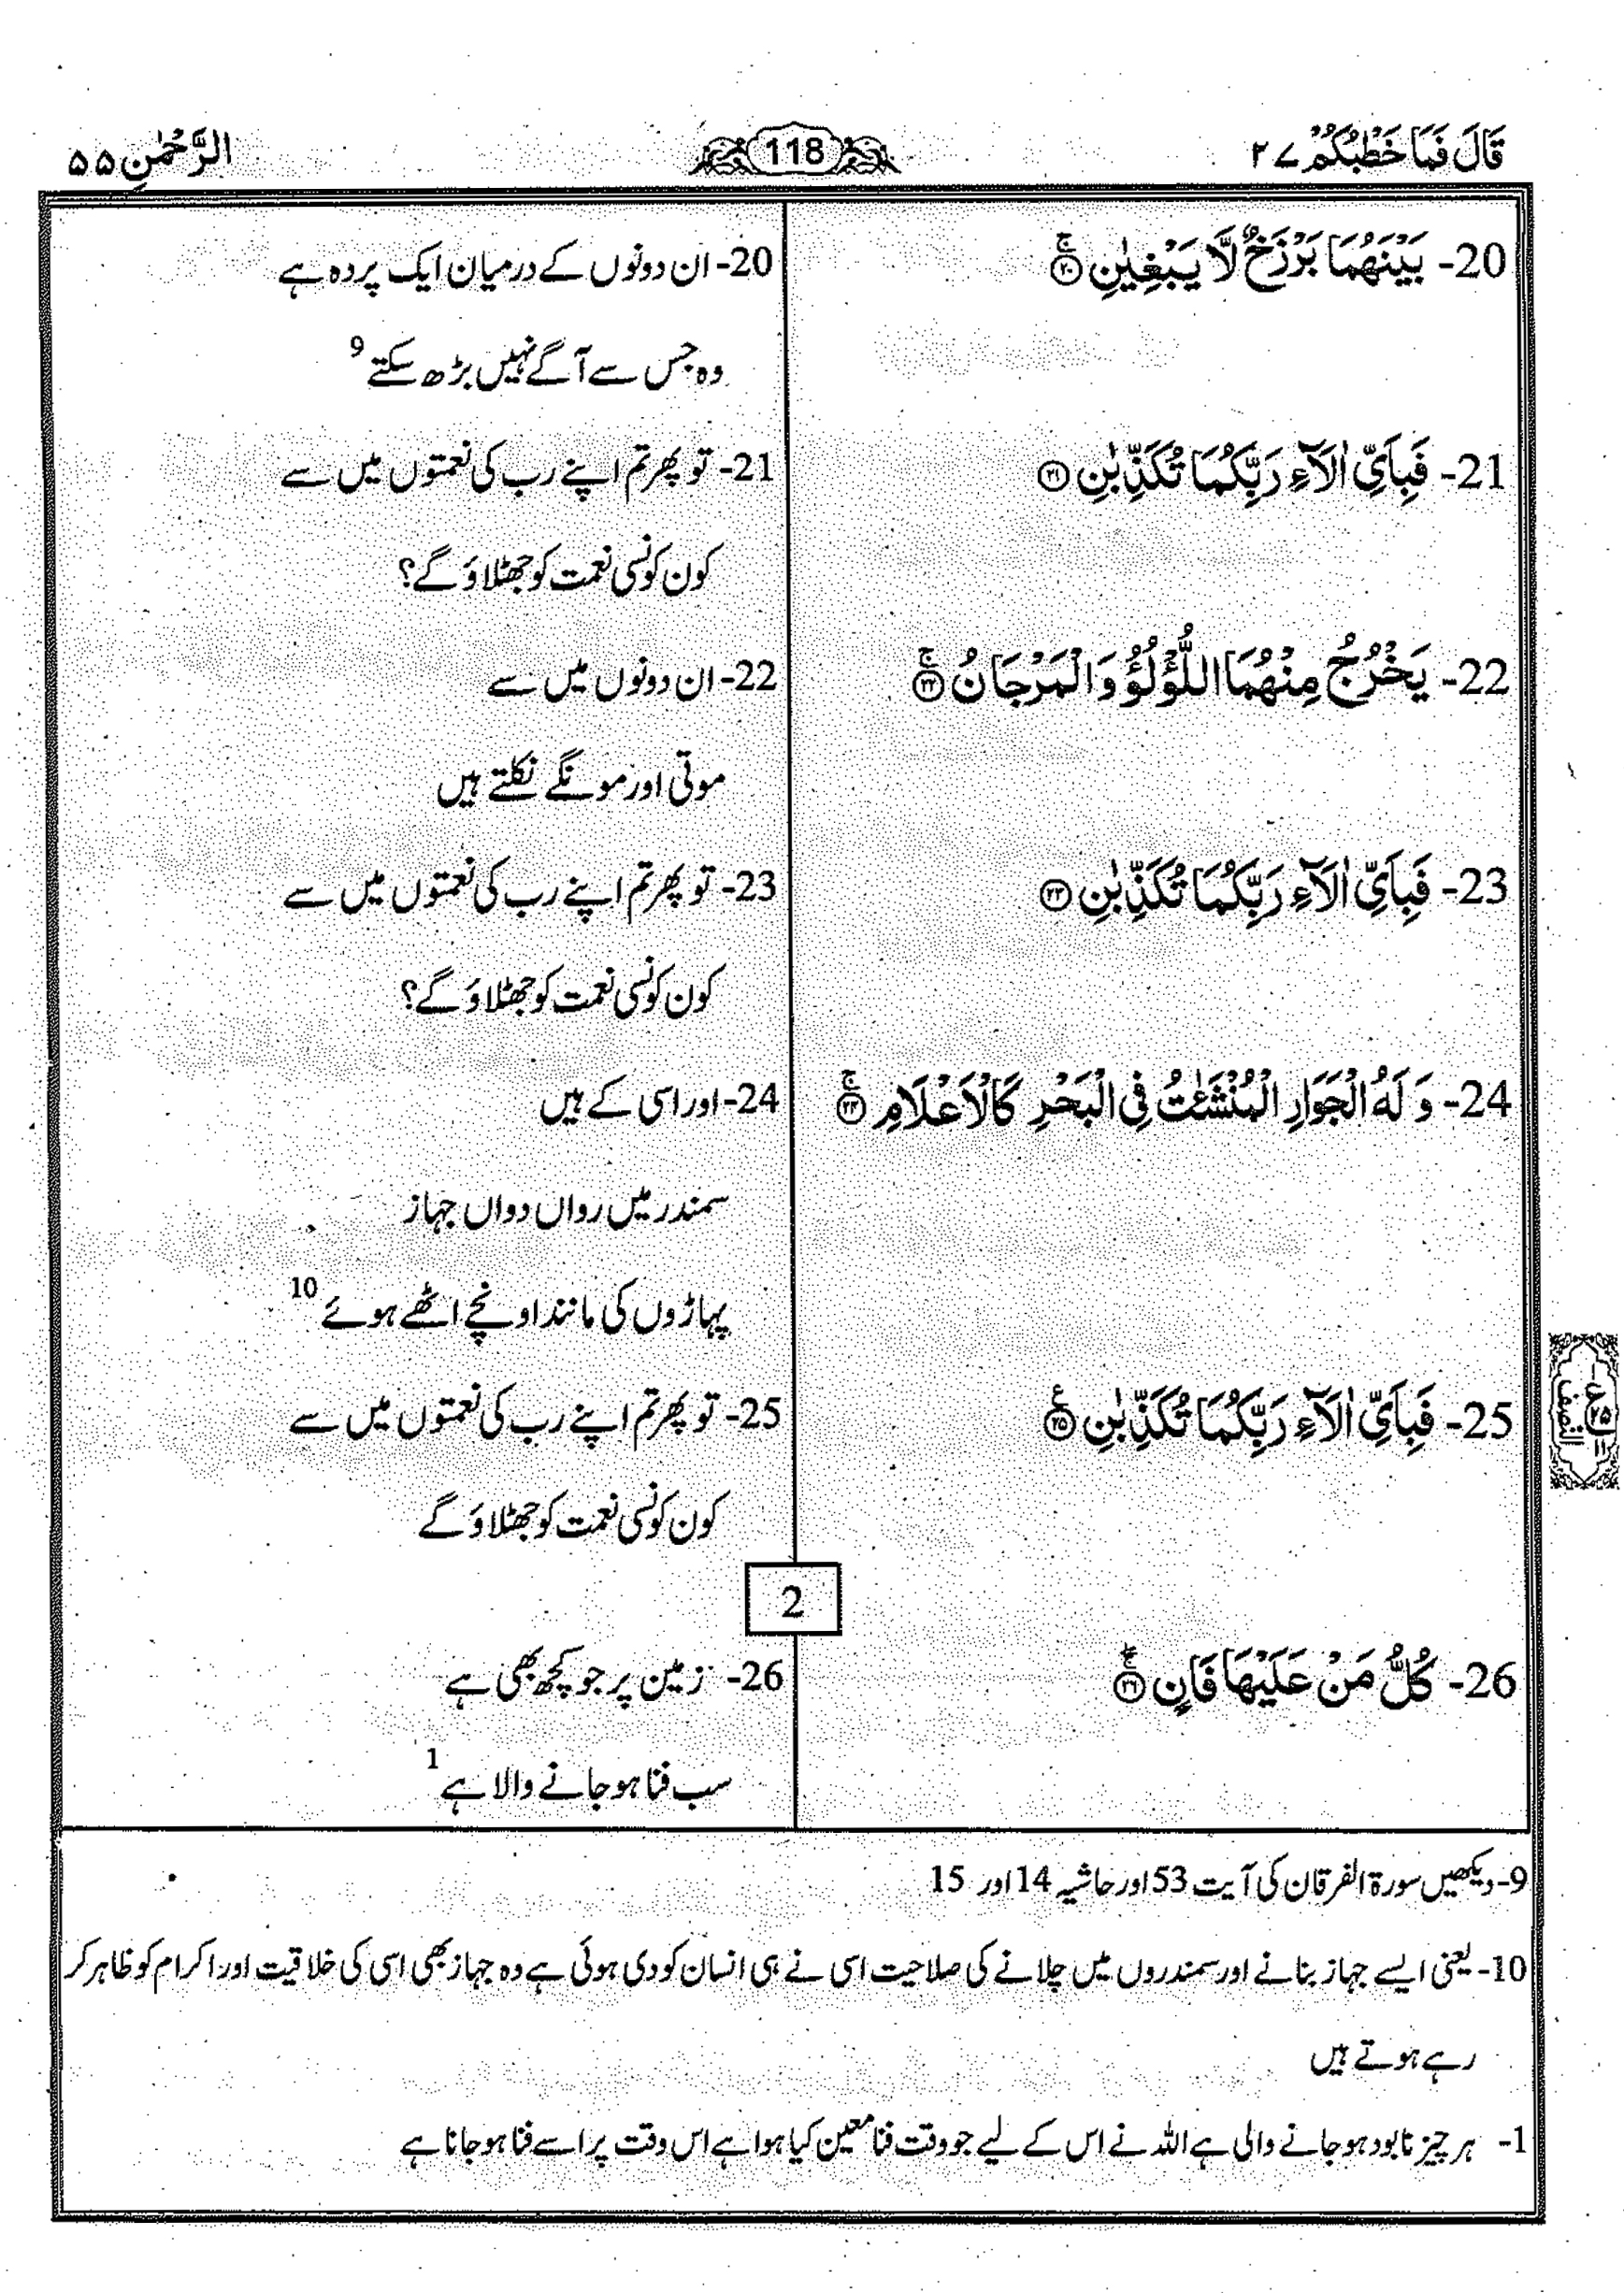 قَالَ فَمَا خَطْبُكُمْ ٢٧
118
الرَّحْمٰنِ ٥٥
20- بَيْنَهُمَا بَرْزَخٌ لَّا يَبْغِيٰنِ ۚ ﴿٢٠﴾
20- ان دونوں کے درمیان ایک پردہ ہے
وہ جس سے آگے نہیں بڑھ سکتے 9
21- فَبِاَيِّ اٰلَآءِ رَبِّكُمَا تُكَذِّبٰنِ ﴿٢١﴾
21- تو پھر تم اپنے رب کی نعمتوں میں سے
کون کونسی نعمت کو جھٹلاؤ گے؟
22- يَخْرُجُ مِنْهُمَا اللُّؤْلُؤُ وَ الْمَرْجَانُ ۚ ﴿٢٢﴾
22- ان دونوں میں سے
موتی اور مونگے نکلتے ہیں
23- فَبِاَيِّ اٰلَآءِ رَبِّكُمَا تُكَذِّبٰنِ ﴿٢٣﴾
23- تو پھر تم اپنے رب کی نعمتوں میں سے
کون کونسی نعمت کو جھٹلاؤ گے؟
24- وَ لَهُ الْجَوَارِ الْمُنْشَئٰتُ فِي الْبَحْرِ كَالْاَعْلَامِ ۚ ﴿٢٤﴾
24- اور اسی کے ہیں
سمندر میں رواں دواں جہاز
پہاڑوں کی مانند اونچے اٹھے ہوئے 10
25- فَبِاَيِّ اٰلَآءِ رَبِّكُمَا تُكَذِّبٰنِ ﴿٢٥﴾ ع
25- تو پھر تم اپنے رب کی نعمتوں میں سے
کون کونسی نعمت کو جھٹلاؤ گے
ع ٢٥ ١١ النصف
2
26- كُلُّ مَنْ عَلَيْهَا فَانٍ ﴿٢٦﴾
26- زمین پر جو کچھ بھی ہے
سب فنا ہو جانے والا ہے 1
9- دیکھیں سورۃ الفرقان کی آیت 53 اور حاشیہ 14 اور 15
10- یعنی ایسے جہاز بنانے اور سمندروں میں چلانے کی صلاحیت اسی نے ہی انسان کو دی ہوئی ہے وہ جہاز بھی اسی کی خلاقیت اور اکرام کو ظاہر کر
رہے ہوتے ہیں
1- ہر چیز نابود ہو جانے والی ہے اللہ نے اس کے لیے جو وقت فنا معین کیا ہوا ہے اس وقت پر اسے فنا ہو جانا ہے